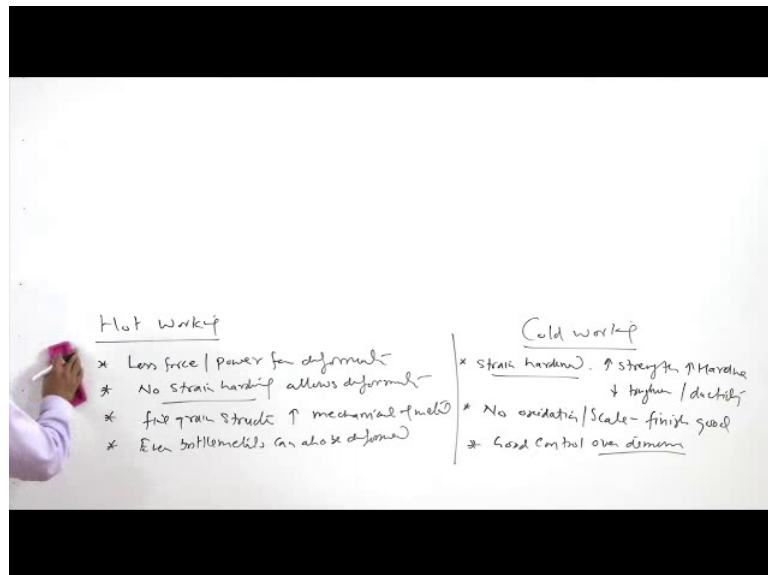 Hot Working
* Less force / Power for deformati
* No strain harding allows deformati
* fine grain Structu ↑ mechanical
* Even brittle metals can also be deformed
Cold working
* Strain hardened. ↑ strength ↑ Hardne
↓ toughnes / ductility
* No oxidation / Scale - finish good
* Good control over dimensn